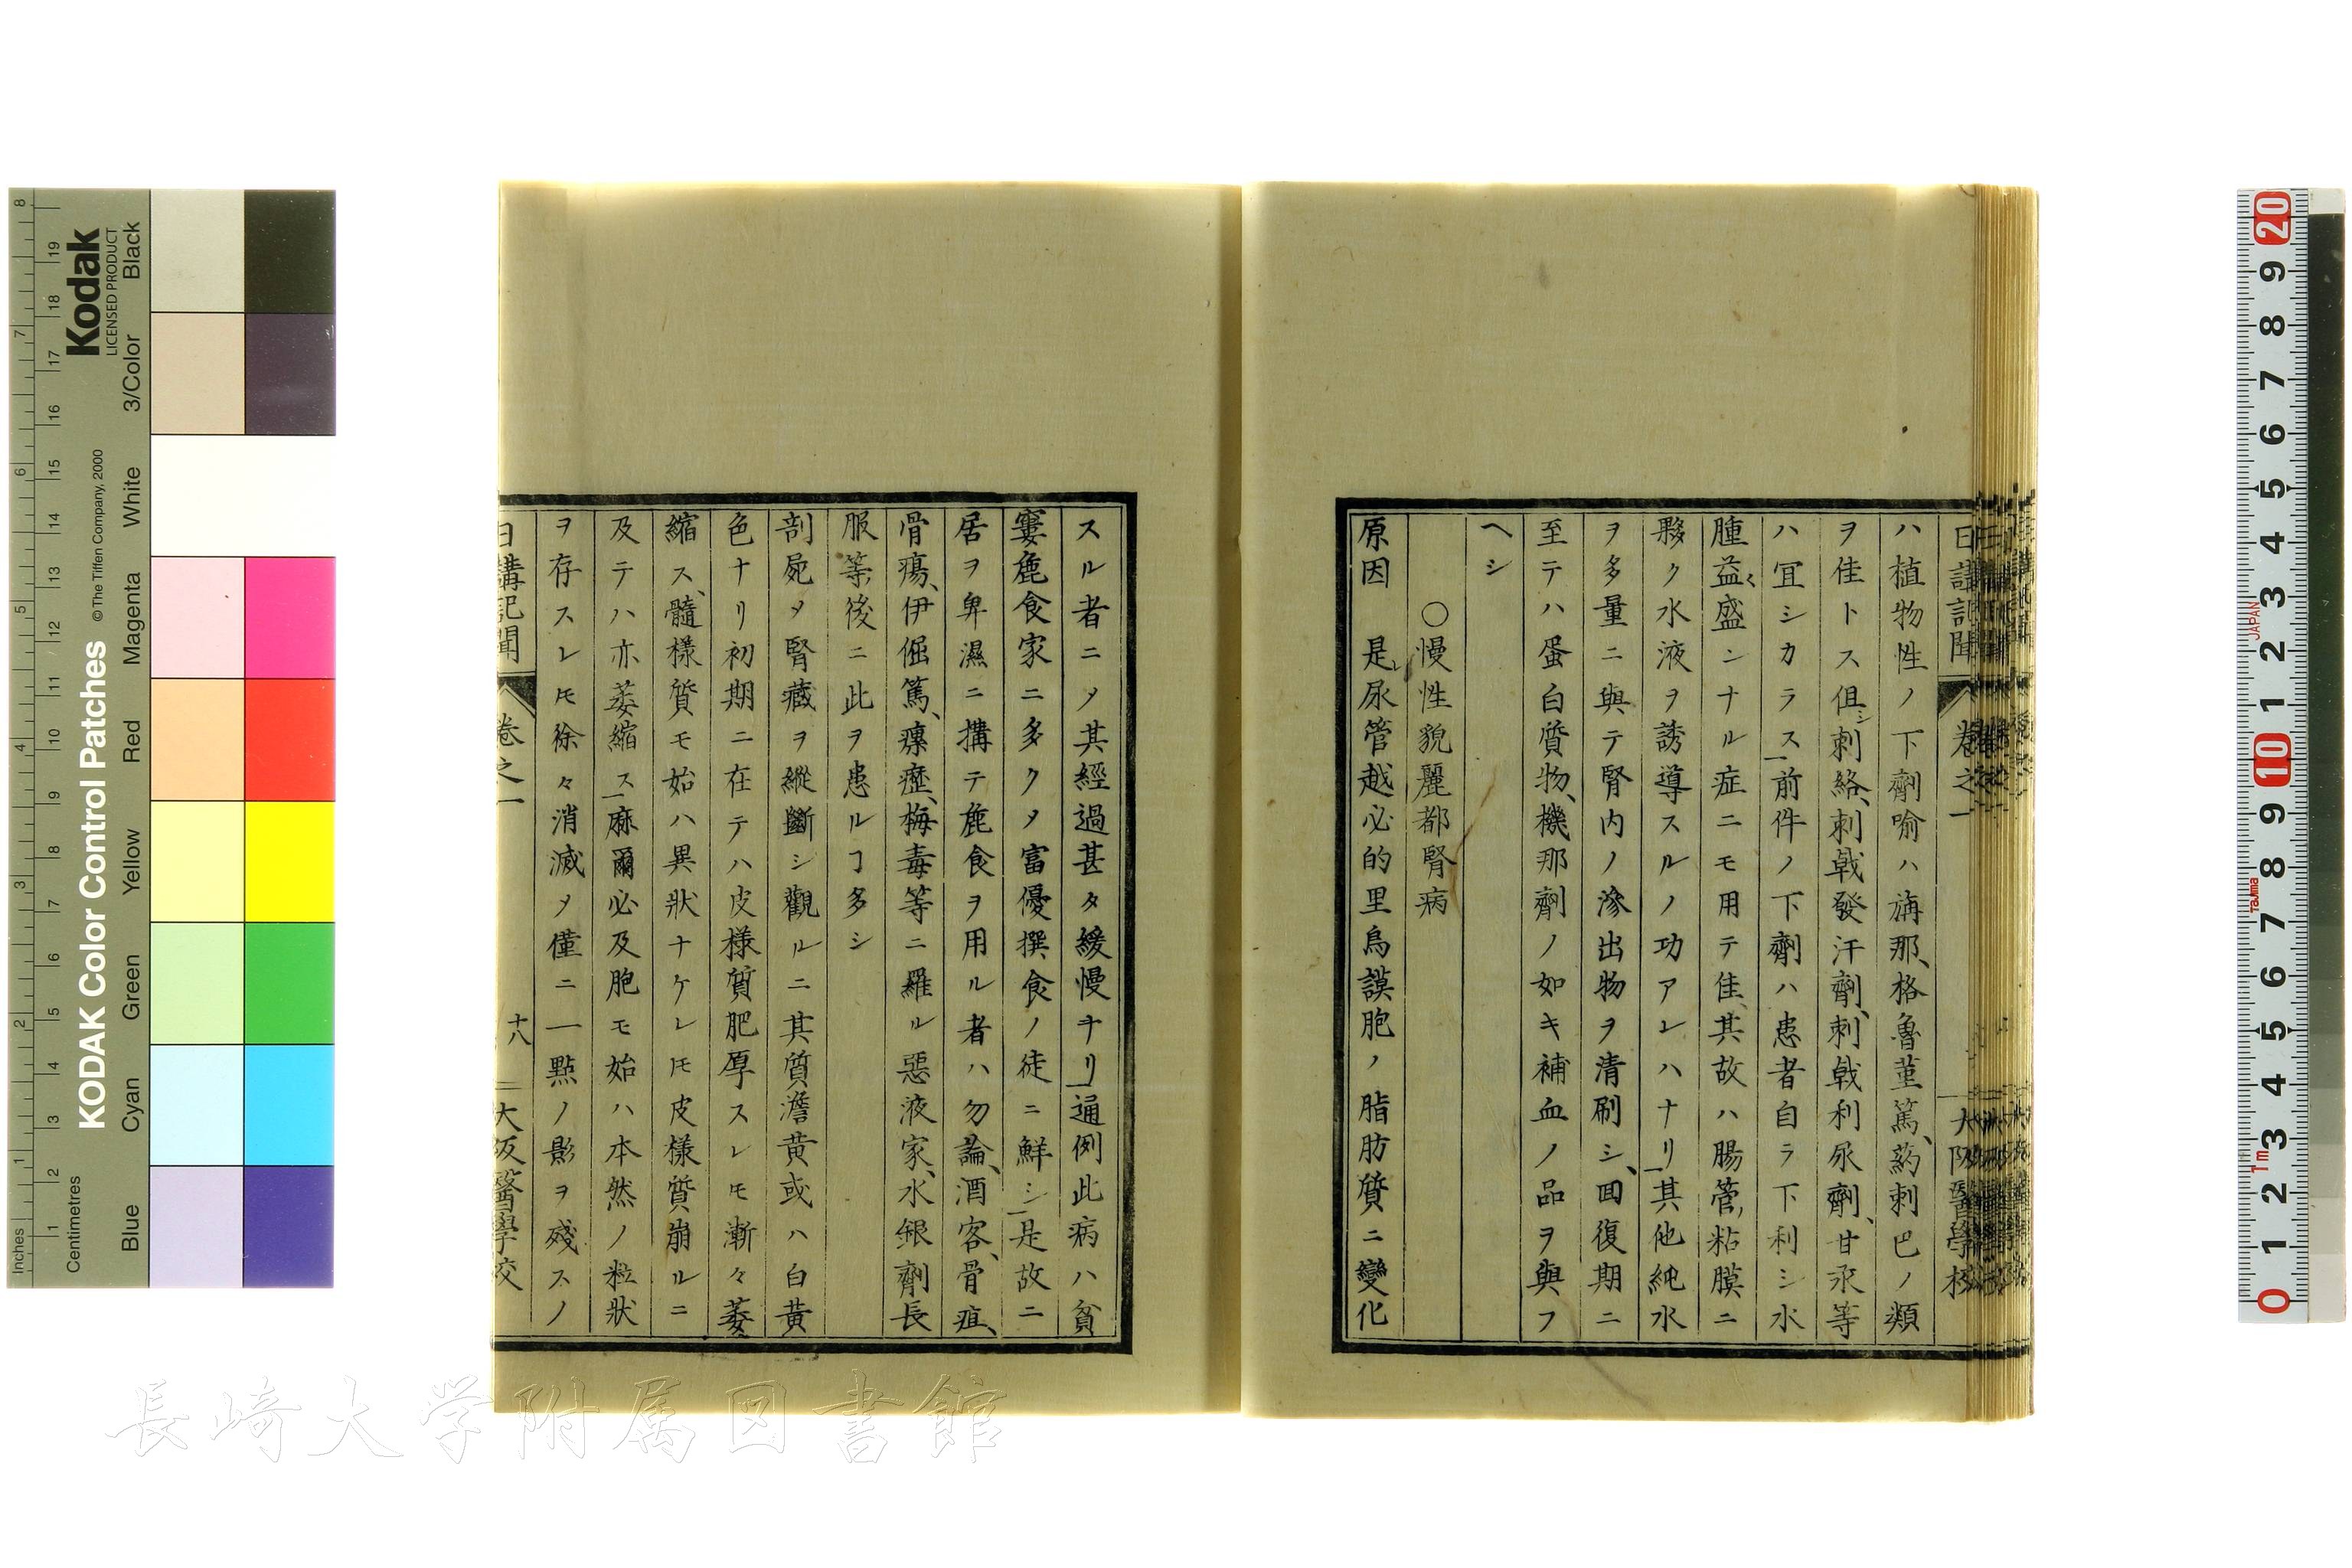 日講記聞 卷之一 大阪醫學校
ハ植物性ノ下劑喻ハ旃那、格魯菫篤、葯剌巴ノ類
ヲ佳トス但シ刺絡、刺戟發汗劑、刺戟利尿劑、甘汞等
ハ冝シカラス」前件ノ下劑ハ患者自ラ下利シ水
腫益〻盛ンナル症ニモ用テ佳、其故ハ腸管、粘膜ニ
夥ク水液ヲ誘導スルノ功アレハナリ」其他純水
ヲ多量ニ與テ腎内ノ滲出物ヲ清刷シ、回復期ニ
至テハ蛋白質物、機那劑ノ如キ補血ノ品ヲ與フ
ヘシ
○慢性貌麗都腎病
原因 是レ尿管越必的里烏謨胞ノ脂肪質ニ變化
スル者ニメ其經過甚タ緩慢ナリ」通例此病ハ貧
窶麁食家ニ多クメ富優撰食ノ徒ニ鮮シ」是故ニ
居ヲ卑濕ニ搆テ麁食ヲ用ル者ハ勿論、酒客、骨疽、
骨瘍、伊倔篤、瘰癧、梅毒等ニ羅ル惡液家、水銀劑長
服等、後ニ此ヲ患ルヿ多シ
剖屍メ腎藏ヲ縱斷シ觀ルニ其質澹黄或ハ白黄
色ナリ初期ニ在テハ皮樣質肥厚スレㇳモ漸々萎
縮ス、髓樣質モ始ハ異狀ナケレㇳモ皮樣質崩ルニ
及テハ亦萎縮ス」麻爾必及胞モ始ハ本然ノ粒狀
ヲ存スレㇳモ徐々消滅メ僅ニ一點ノ影ヲ殘スノ
日講記聞 卷之一 十八 大阪醫學校
長崎大学附属図書館
Kodak
LICENSED PRODUCT
KODAK Color Control Patches
© The Tiffen Company, 2000
Inches 1 2 3 4 5 6 7 8
Centimetres 1 2 3 4 5 6 7 8 9 10 11 12 13 14 15 16 17 18 19
Blue Cyan Green Yellow Red Magenta White 3/Color Black
0 1 2 3 4 5 6 7 8 9 10 1 2 3 4 5 6 7 8 9 20
1m TaJima JAPAN